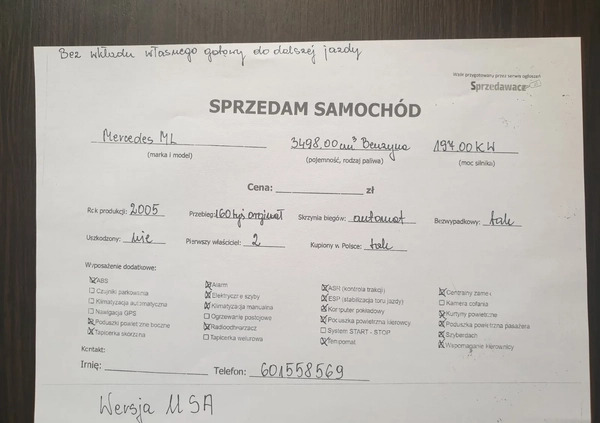 Bez wkładu własnego gotowy do dalszej jazdy
Wzór przygotowany przez serwis ogłoszeń
Sprzedawacz
SPRZEDAM SAMOCHÓD
Mercedes ML 3498.00 cm³ Benzyna 197.00 KW
(marka i model) (pojemność, rodzaj paliwa) (moc silnika)
Cena: zł
Rok produkcji: 2005 Przebieg: 160 tyś oryginał Skrzynia biegów: automat Bezwypadkowy: tak
Uszkodzony: nie Pierwszy właściciel: 2 Kupiony w Polsce: tak
Wyposażenie dodatkowe:
ABS Alarm ASR (kontrola trakcji) Centralny zamek
Czujniki parkowania Elektryczne szyby ESP (stabilizacja toru jazdy) Kamera cofania
Klimatyzacja automatyczna Klimatyzacja manualna Komputer pokładowy Kurtyny powietrzne
Nawigacja GPS Ogrzewanie postojowe Poduszka powietrzna kierowcy Poduszka powietrzna pasażera
Poduszki powietrzne boczne Radioodtwarzacz System START - STOP Szyberdach
Tapicerka skórzana Tapicerka welurowa Tempomat Wspomaganie kierownicy
Kontakt:
Imię: Telefon: 601558569
Wersja USA